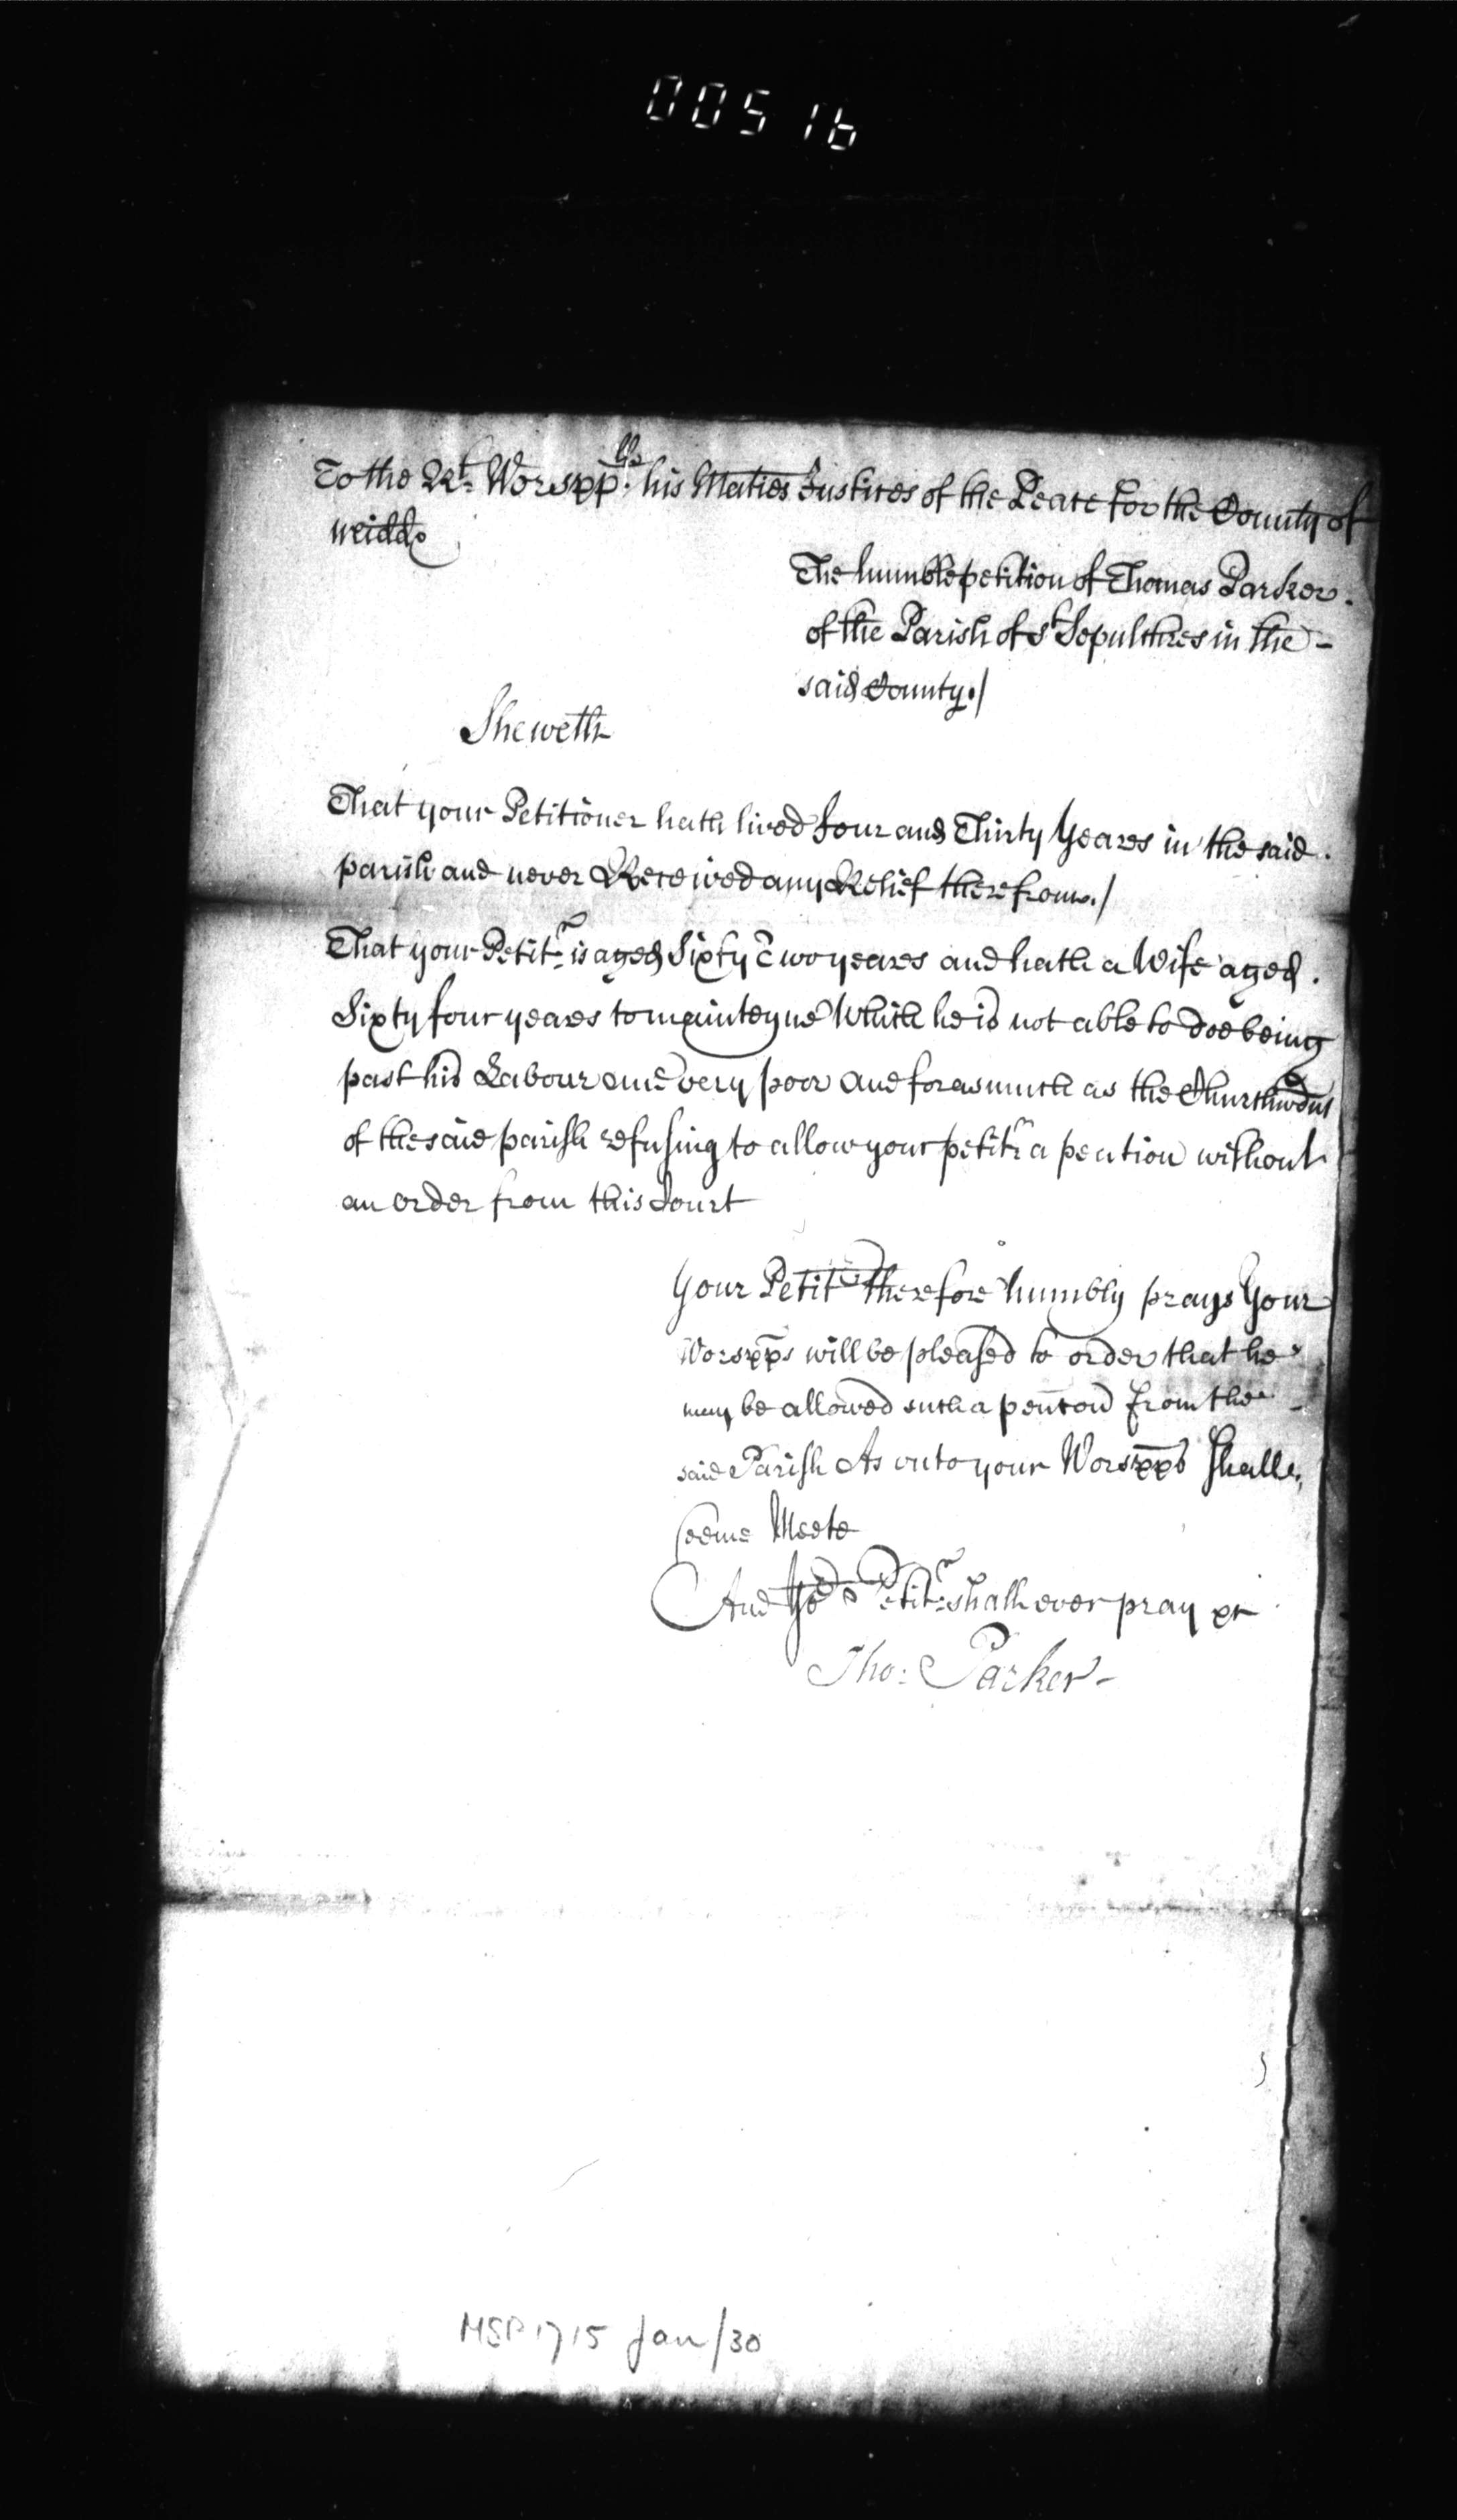 00516
To the Rt. Worspp.lls his Maties Justices of the Peace for the County of
Midd
The humble petition of Thomas Parker
of the Parish of St Sepulchres in the -
said County./
Sheweth
That your Petitioner hath lived four and Thirty Yeares in the said
parish and never Received any Relief therefrom./
That your Petitr. is aged Sixty Two yeares and hath a Wife aged
Sixty four yeares to mainteyne Which he is not able to doe being
past his Labour and very poor and forasmuch as the Churchwdns
of the said parish refusing to allow your petitr. a pention without
an order from this Court
Your Petitr. therefore humbly prays Your
Worspps will be pleased to order that he
may be allowed such a pencon from the -
said Parish As unto your Worspps shall
seeme Meete
And yor Petitr. shall ever pray &c
Tho: Parker -
MSP 1715 Jan/30